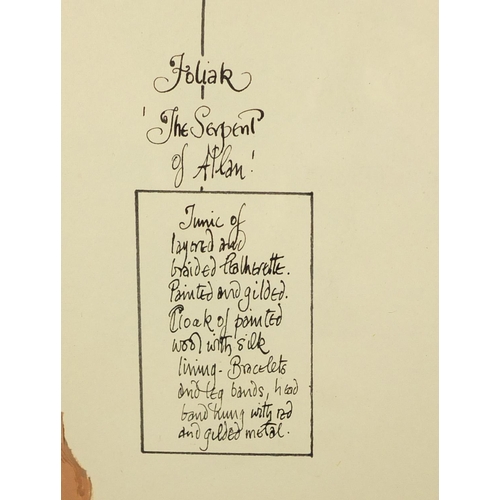 Foliak
'The Serpent
of Atlan'
Tunic of
layered and
braided leatherette.
Painted and gilded.
Cloak of painted
wool with silk
lining - Bracelets
and leg bands, head
band hung with red
and gilded metal.